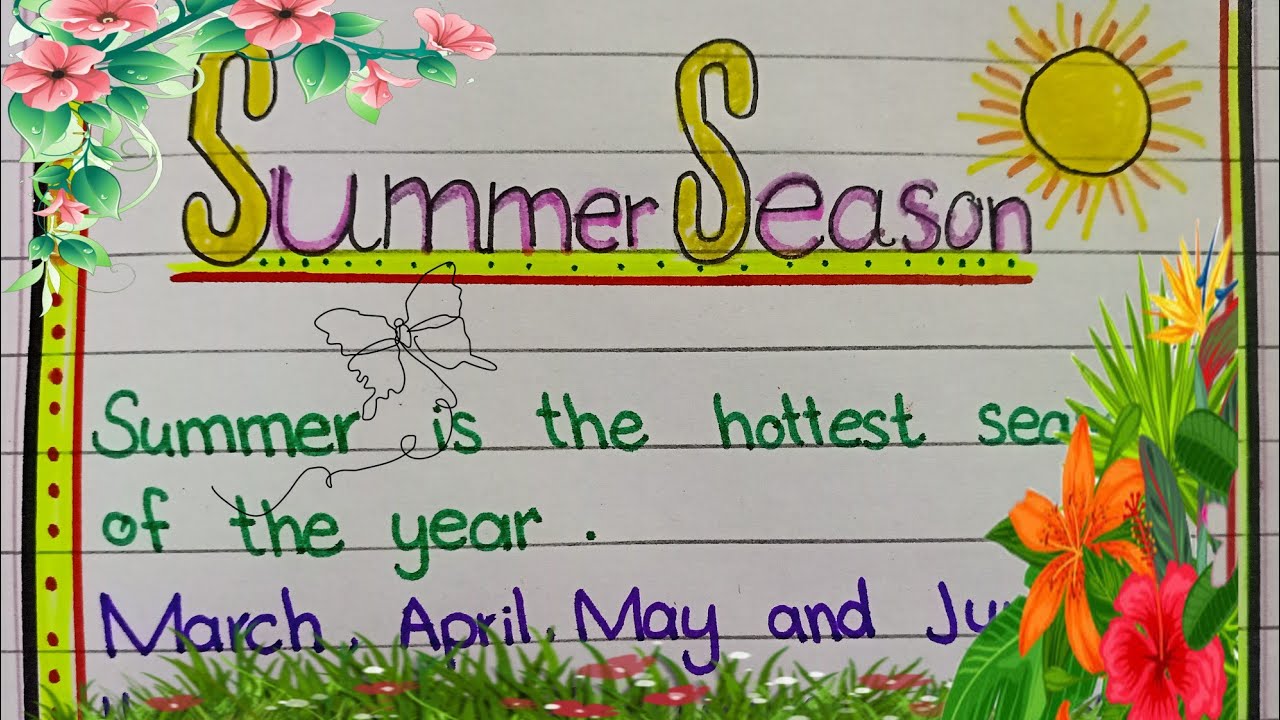 Summer Season
Summer is the hottest
of the year .
March, April, May and